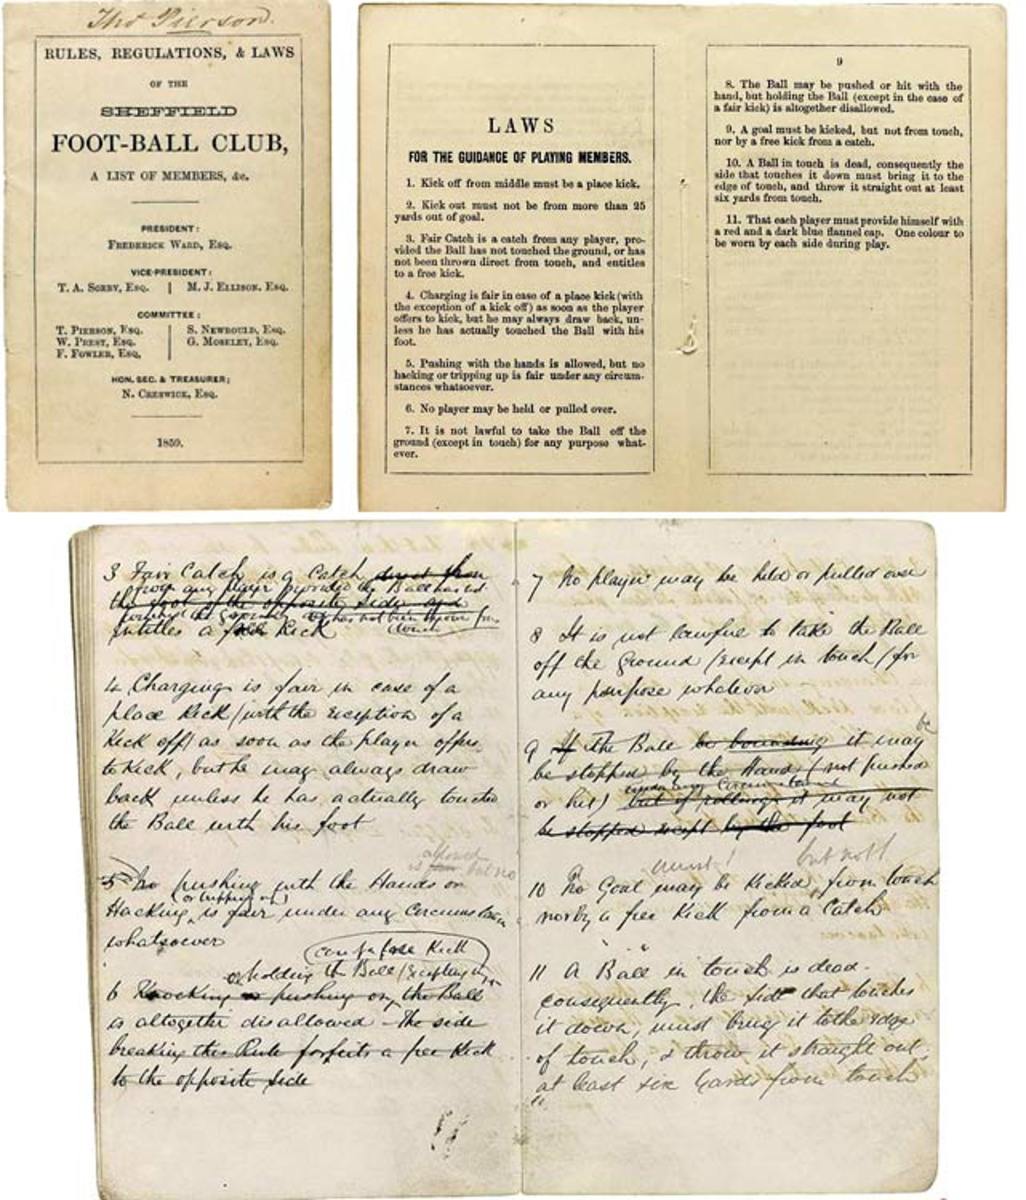 Tho Pierson.
RULES, REGULATIONS, & LAWS
OF THE
SHEFFIELD
FOOT-BALL CLUB,
A LIST OF MEMBERS, &c.
PRESIDENT:
FREDERICK WARD, ESQ.
VICE-PRESIDENT:
T. A. SORBY, ESQ. | M. J. ELLISON, ESQ.
COMMITTEE:
T. PIERSON, ESQ. S. NEWBOULD, ESQ.
W. PREST, ESQ. G. MOSELEY, ESQ.
F. FOWLER, ESQ.
HON. SEC. & TREASURER;
N. CRESWICK, ESQ.
1859.
LAWS
FOR THE GUIDANCE OF PLAYING MEMBERS.
1. Kick off from middle must be a place kick.
2. Kick out must not be from more than 25
yards out of goal.
3. Fair Catch is a catch from any player, pro-
vided the Ball has not touched the ground, or has
not been thrown direct from touch, and entitles
to a free kick.
4. Charging is fair in case of a place kick (with
the exception of a kick off) as soon as the player
offers to kick, but he may always draw back, un-
less he has actually touched the Ball with his
foot.
5. Pushing with the hands is allowed, but no
hacking or tripping up is fair under any circum-
stances whatsoever.
6. No player may be held or pulled over.
7. It is not lawful to take the Ball off the
ground (except in touch) for any purpose what-
ever.
9
8. The Ball may be pushed or hit with the
hand, but holding the Ball (except in the case of
a fair kick) is altogether disallowed.
9. A goal must be kicked, but not from touch,
nor by a free kick from a catch.
10. A Ball in touch is dead, consequently the
side that touches it down must bring it to the
edge of touch, and throw it straight out at least
six yards from touch.
11. That each player must provide himself with
a red and a dark blue flannel cap. One colour to
be worn by each side during play.
3 Fair Catch is a Catch direct from
from any player provided the Ball has not
the foot of the opposite side and
touch
entitles a free Kick
4 Charging is fair in case of a
place Kick (with the exception of a
Kick off) as soon as the player offers
to Kick, but he may always draw
back unless he has actually touched
the Ball with his foot
allowed
is fair but no
5 No pushing with the Hands or
(or tripping up)
Hacking is fair under any Circumstances
whatsoever
free Kick
or holding the Ball (excepting in
6 Knocking or pushing on the Ball
is altogether disallowed - The side
breaking this Rule forfeits a free Kick
to the opposite side
7 No player may be held or pulled over
8 It is not lawful to take the Ball
off the Ground (except in touch) for
any purpose whatever
be
9 If the Ball be bounding it may
be stopped by the Hand (not pushed
under any circumstances
or hit) but if rolling it may not
be stopped except by the foot
must! but not
10 No Goal may be Kicked, from touch
nor by a free Kick from a Catch
11 A Ball in touch is dead.
consequently, the side that touches
it down, must bring it to the edge
of touch, & throw it straight out,
at least six Yards from touch